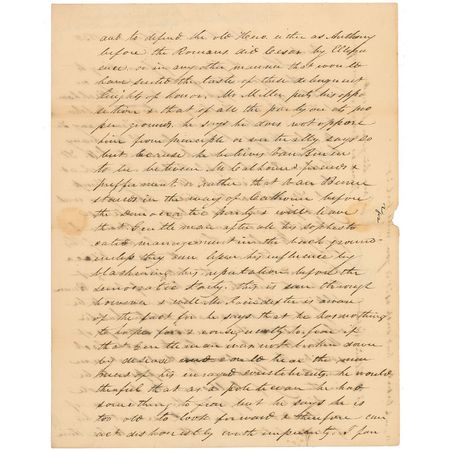 and to defend the old Hero either as Anthony
before the Romans did Cesar by
or in any other manner that would
have suited the taste of these delinquent
Knights of honor. Mr Miller puts his oppo
sition & that of all the party on its pro
per grounds. he says he does not oppose
him from principle or virtually says so
but because he believes Van Buren
to be between Mr Calhoun & friends &
prefferment or rather that Van Buren
stands in the way of Calhoun before
the Democratic party & will leave
that Gentleman after all his sophisti
cated management in the back ground
unless they can lessen his influence by
blasting his reputation before the
Democratic Party. this is seen through
however & still Mr Poindexter is aware
of the fact for he says that he has nothing
to hope for &
that Gentleman was not broken down
by disease and could hear the
of its he would
think that as a politician he had
something to fear but he says he is
too old to look forward & therefore can
act dishonestly with impunity. I for